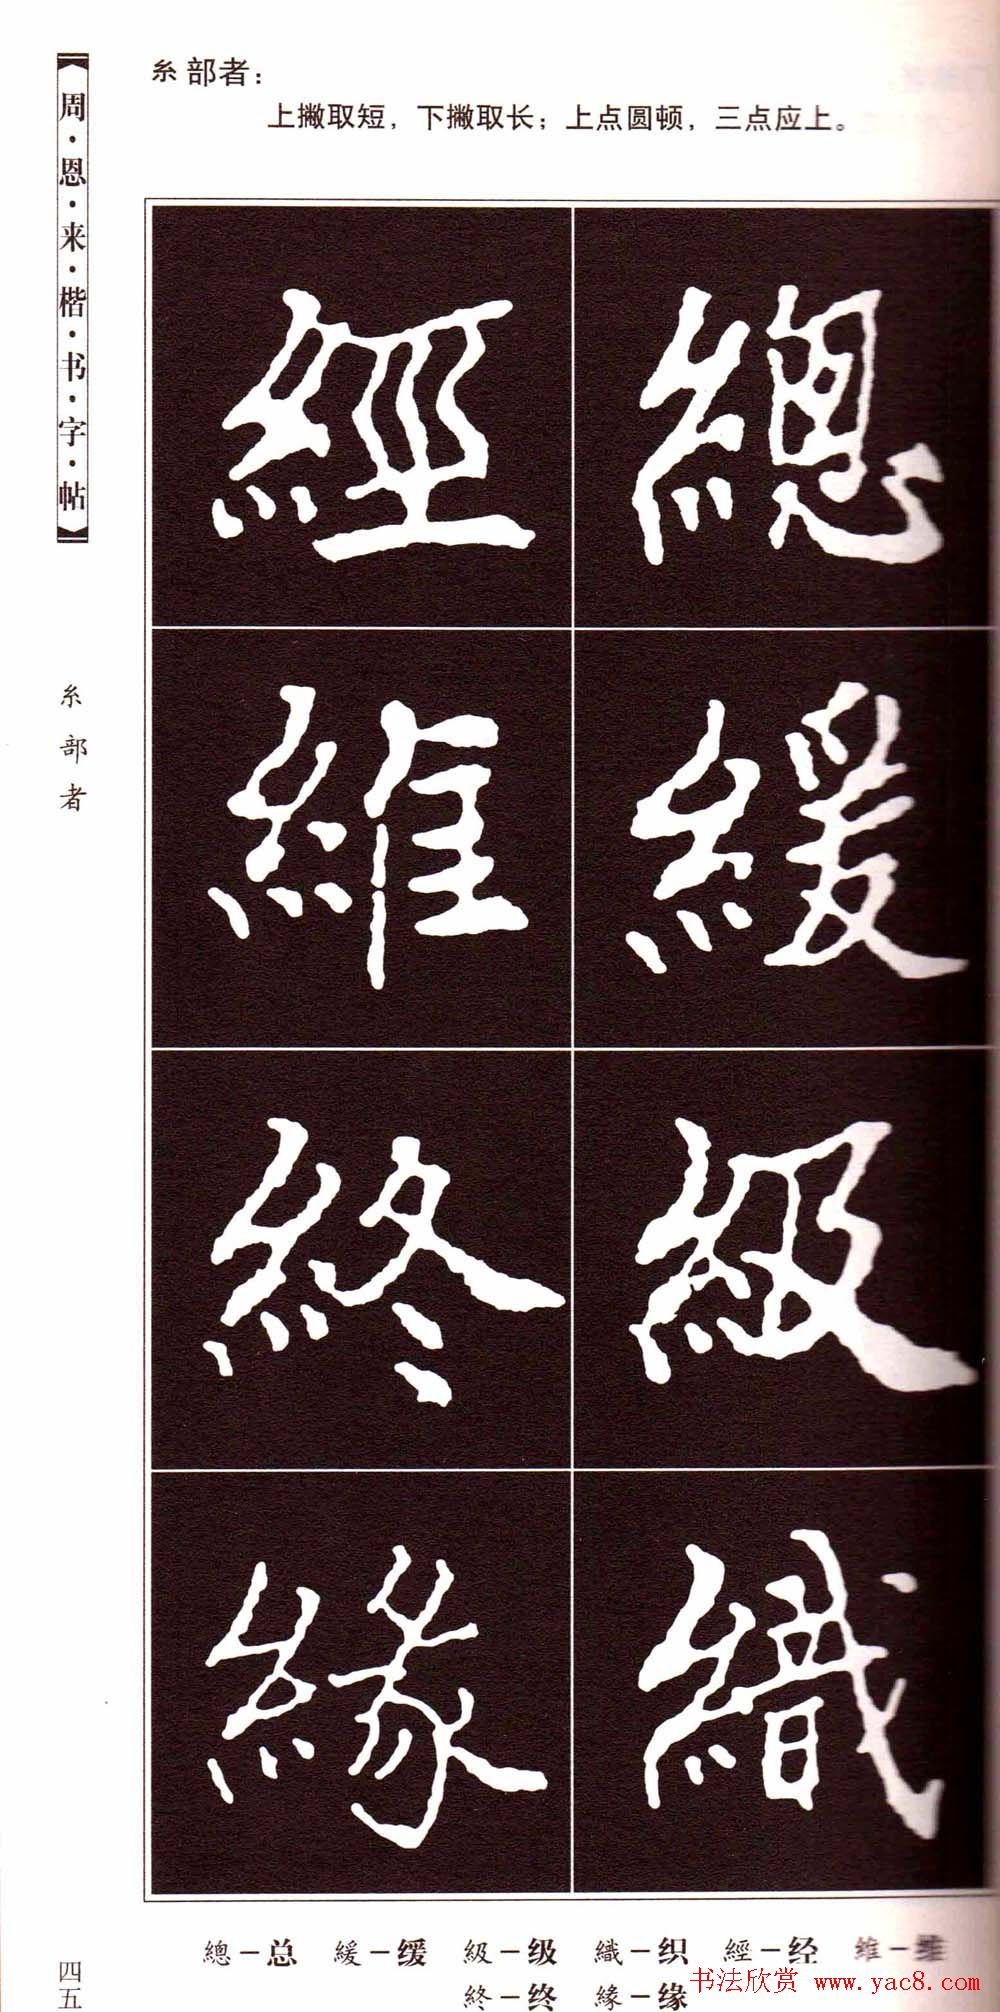 糸部者：
上撇取短，下撇取长；上点圆顿，三点应上。
【周·恩·来·楷·书·字·帖】
糸部者
總
緩
級
織
經
維
終
緣
總－总 緩－缓 級－级 織－织 經－经 維－维
終－终 緣－缘
四五
书法欣赏 www.yac8.com